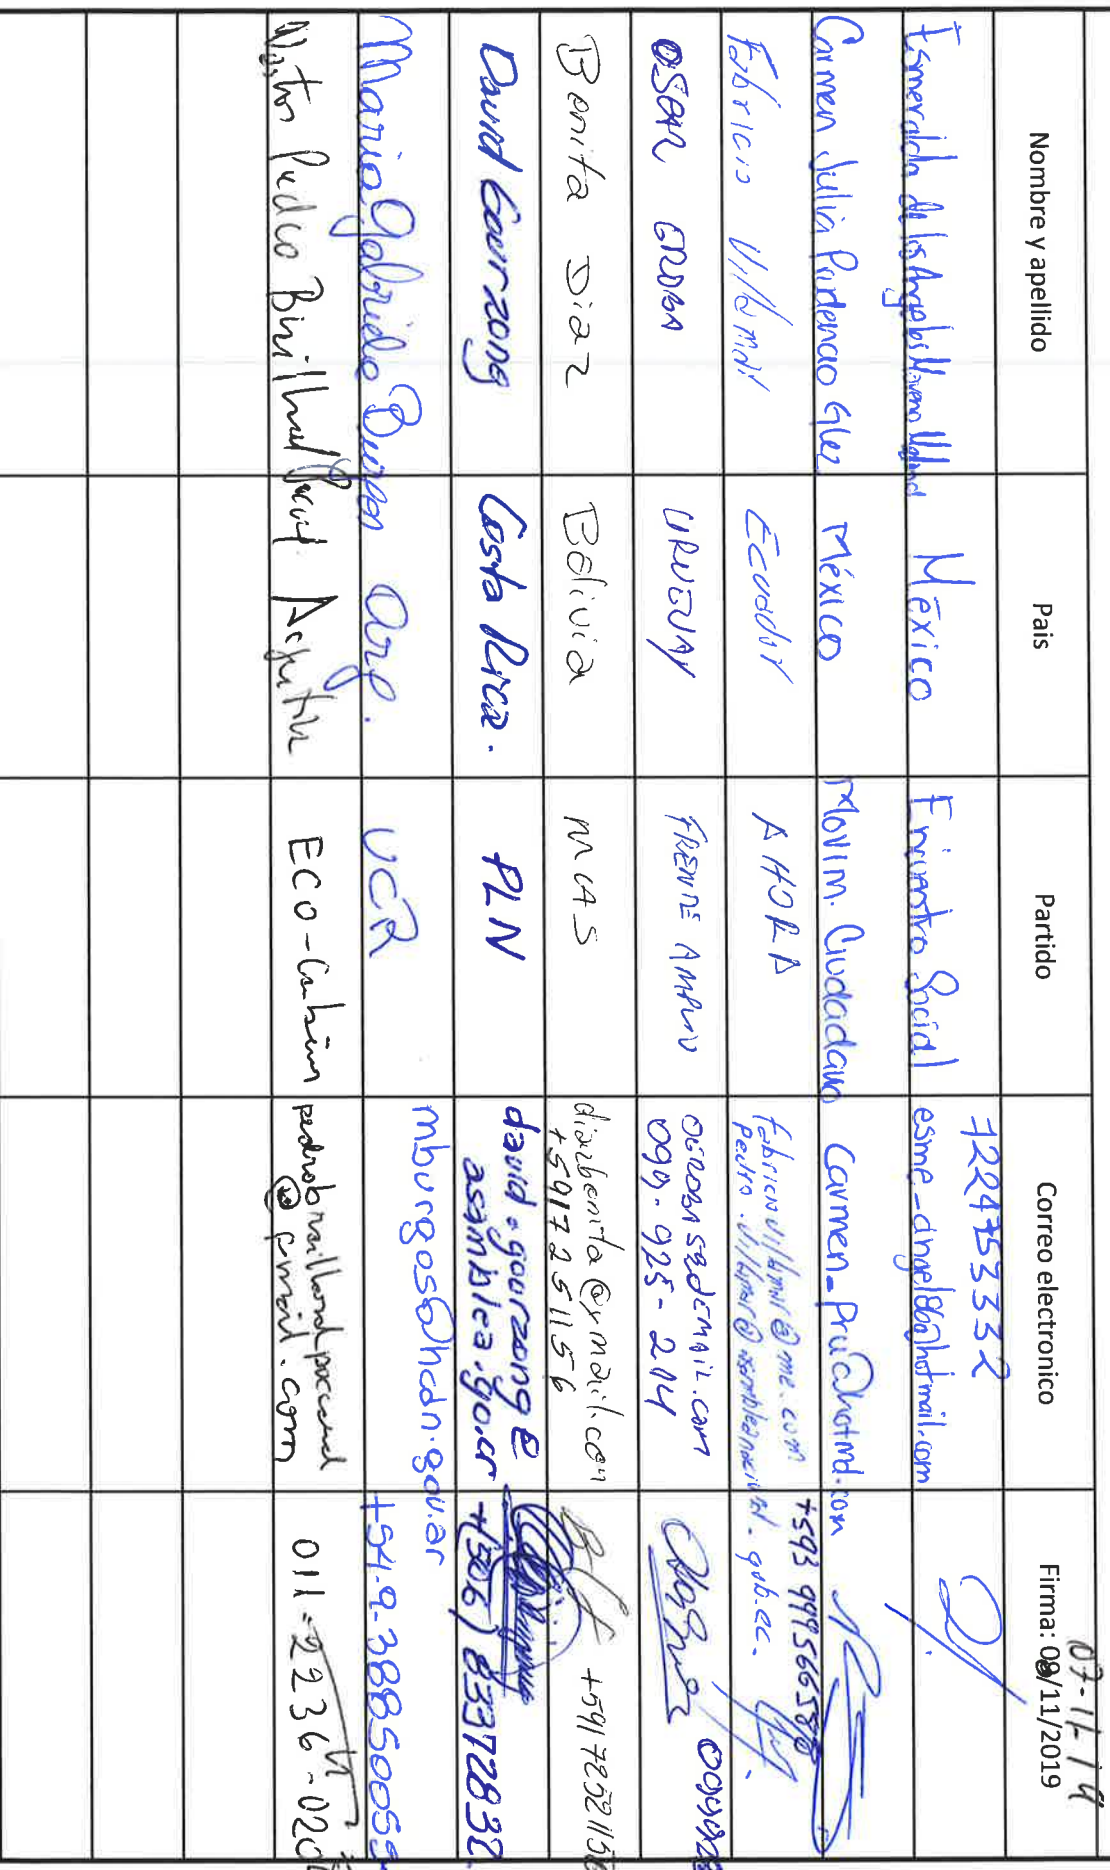 07-11-19
Nombre y apellido Pais Partido Correo electronico Firma: 08/11/2019
7224753332
Esmeralda de los Angeles Moreno México Encuentro Social esme_angel86@hotmail.com
Carmen Julia Prudencio Glez México Movim. Ciudadano carmen_pru@hotmd.com
+593 999566588
Fabricio Villamar Ecuador AHORA fabriciovillamar@me.com
pedro.villamar@asambleanacional.gob.ec
OSCAR GROBA URUGUAY FRENTE AMPLIO
099.925-214
Benita Diaz Bolivia MAS diazbenita@ymail.com
+59172521156 +59172521156
David Gourzong Costa Rica. PLN david.gourzong@
asamblea.go.cr +(506) 83372832
Maria Gabriela Burgos Arg. UCR mburgos@hcdn.gov.ar
+54.9.3885005
Pedro ECO-
@gmail.com 011-2236-020